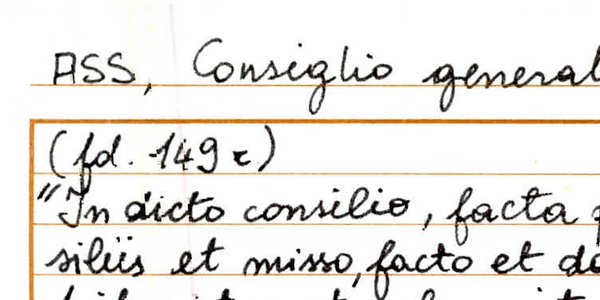 ASS, Consiglio general
(fol. 149 r)
"In dicto consilio, facta
siliis et misso, facto et